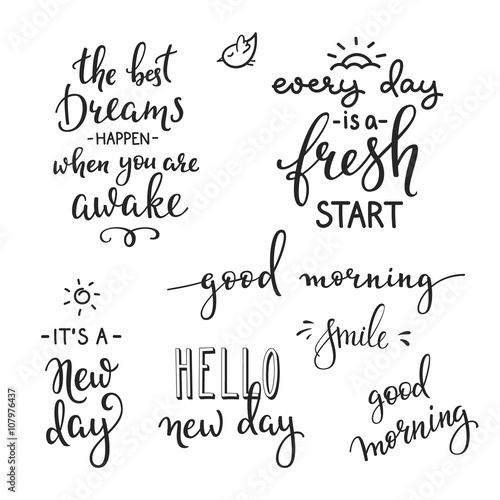 the best
Dreams
-HAPPEN-
when you are
awake
every day
-is a-
fresh
START
good morning
smile
-IT'S A-
New
day
HELLO
new day
good
morning
Adobe Stock | #107976437